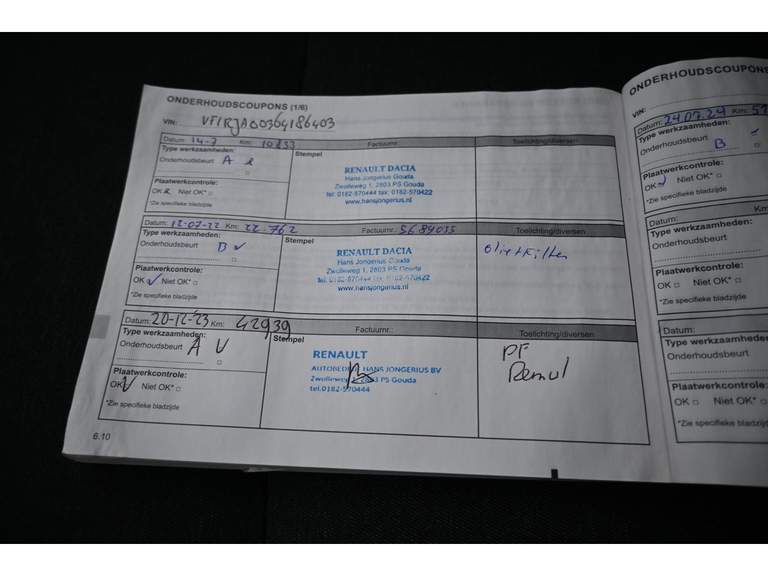 ONDERHOUDSCOUPONS (1/6)
VIN: VF1RJA00364186403
Datum: 14-7 Km: 10833 Factuurnr.: Toelichting/diversen
Type werkzaamheden: Stempel
Onderhoudsbeurt A
RENAULT DACIA
Hans Jongerius Gouda
Zwolleweg 1, 2803 PS Gouda
tel: 0182-570444 fax: 0182-570422
www.hansjongerius.nl
Plaatwerkcontrole:
OK Niet OK* □
*Zie specifieke bladzijde
Datum: 12-07-22 Km: 22.762 Factuurnr.: 5684035 Toelichting/diversen
Type werkzaamheden: Stempel
Onderhoudsbeurt B ✓
RENAULT DACIA
Hans Jongerius Gouda
Zwolleweg 1, 2803 PS Gouda
tel: 0182-570444 fax: 0182-570422
www.hansjongerius.nl
Plaatwerkcontrole:
OK ✓ Niet OK* □
*Zie specifieke bladzijde
Datum: 20-12-23 Km: 42939 Factuurnr.: Toelichting/diversen
Type werkzaamheden: Stempel
Onderhoudsbeurt A V
RENAULT
AUTOBEDRIJF HANS JONGERIUS BV
Zwolleweg 1, 2803 PS Gouda
tel.0182-570444
PF
Remul
Plaatwerkcontrole:
OK Niet OK* □
*Zie specifieke bladzijde
6.10
ONDERHOUDSCOUPONS
VIN:
Datum: 24.07.24 Km: 51
Type werkzaamheden:
Onderhoudsbeurt B
Plaatwerkcontrole:
OK Niet OK* □
*Zie specifieke bladzijde
Datum: Km
Type werkzaamheden:
Onderhoudsbeurt
Plaatwerkcontrole:
OK □ Niet OK* □
*Zie specifieke bladzijde
Datum:
Type werkzaamheden
Onderhoudsbeurt
Plaatwerkcontrole:
OK □ Niet OK* □
*Zie specifieke bladzijde